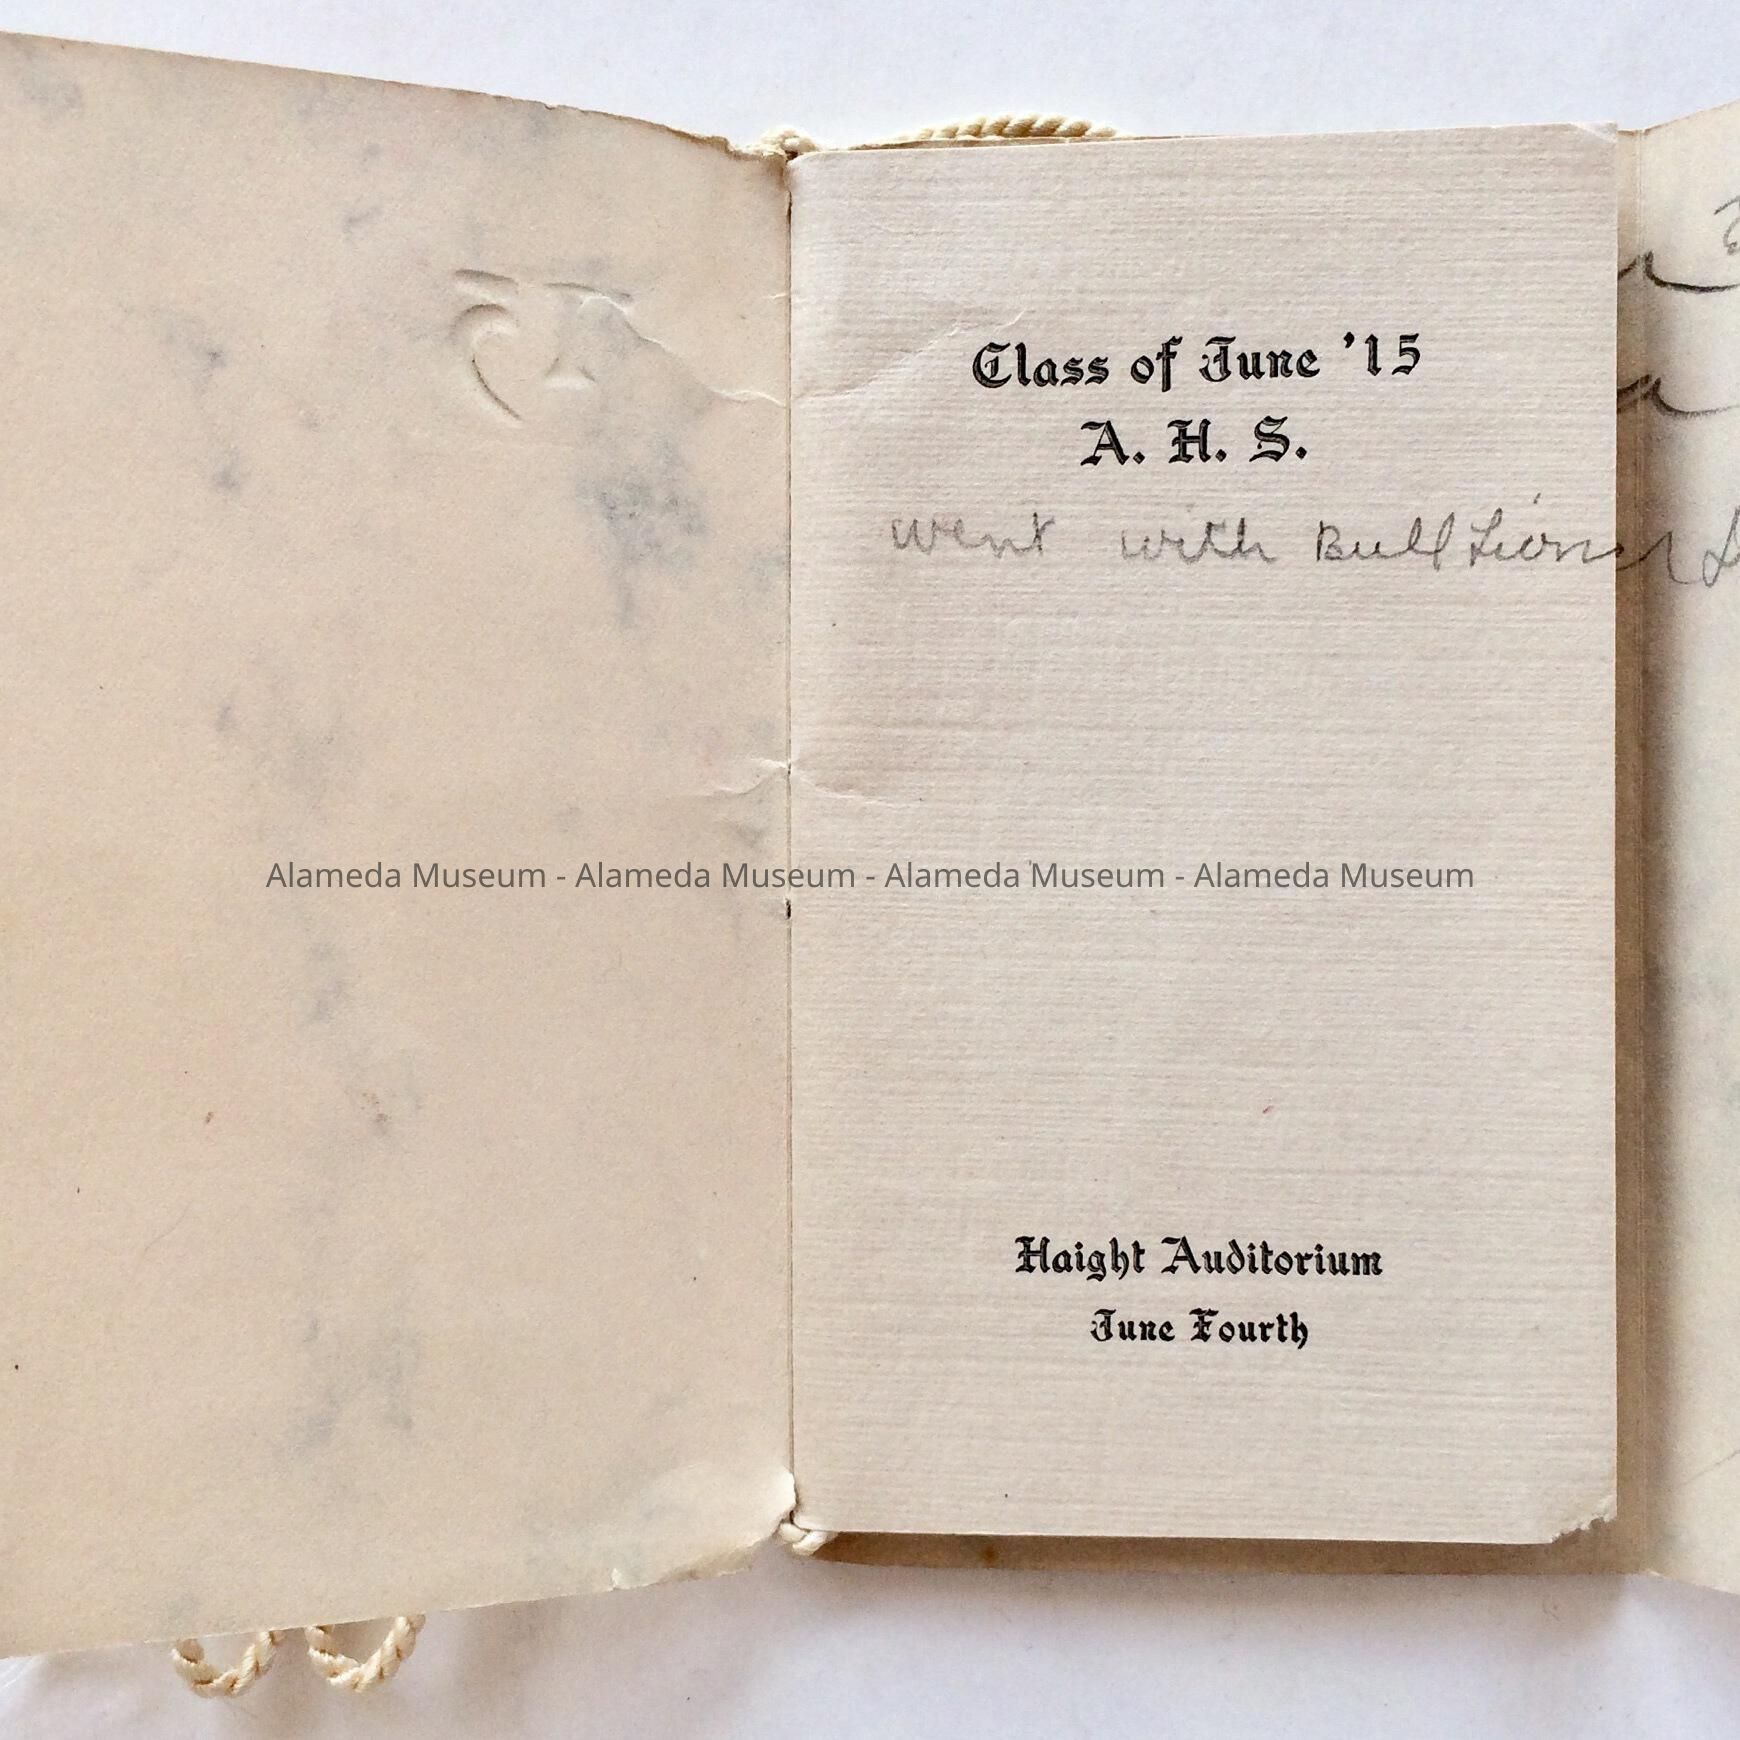 Class of June '15
A. H. S.
went with Bull
Alameda Museum - Alameda Museum - Alameda Museum - Alameda Museum
Haight Auditorium
June Fourth